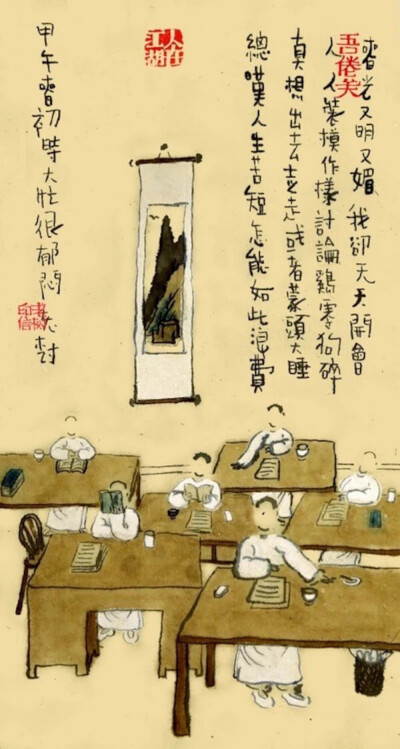 吾倦矣
春光又明又媚我卻天天開會
人人裝模作樣討論雞零狗碎
真想出去走走或者蒙頭大睡
總嘆人生苦短怎能如此浪費
人在江湖
甲午春初時大忙很郁悶老树